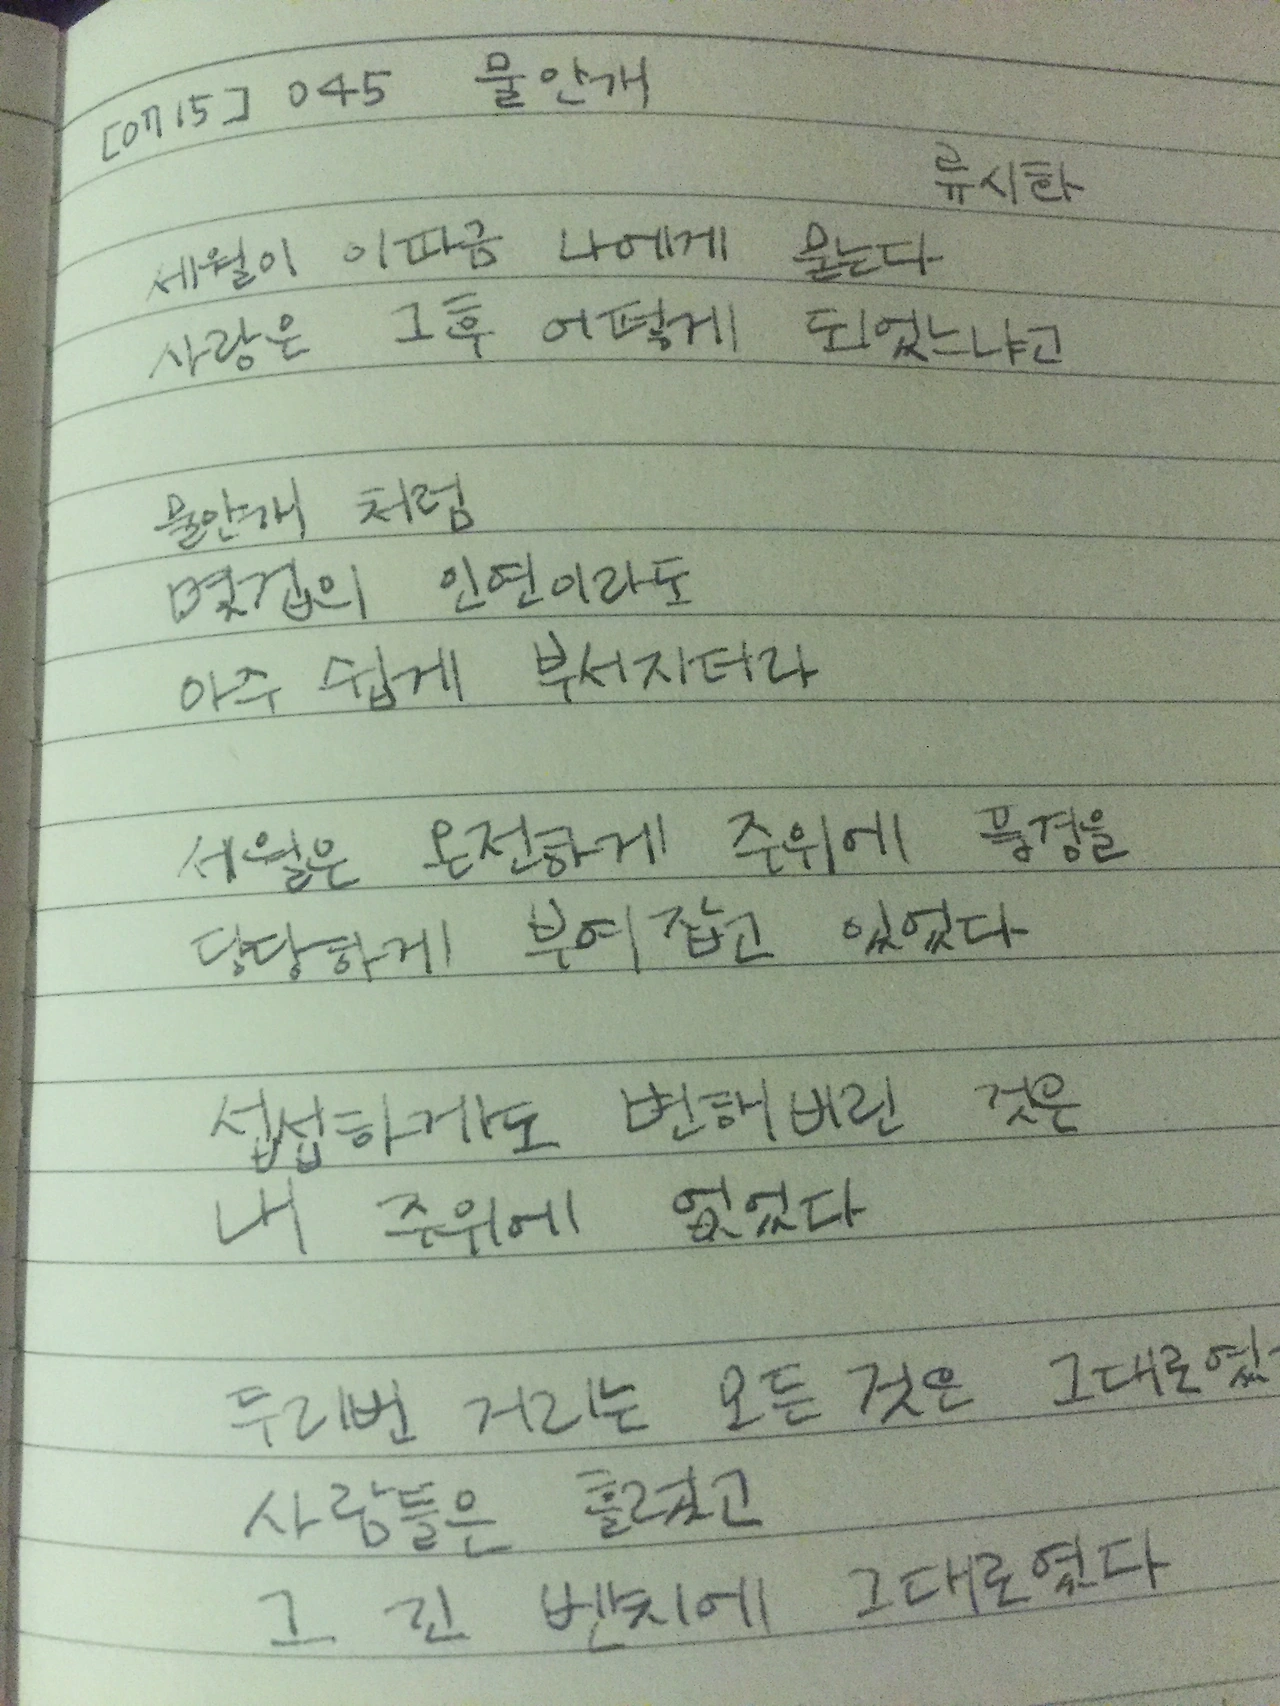 [0715] 045 물안개
류시화
세월이 이따금 나에게 묻는다
사랑은 그후 어떻게 되었느냐고
물안개 처럼
몇겁의 인연이라도
아주 쉽게 부서지더라
세월은 온전하게 주위에 풍경을
당당하게 부여잡고 있었다
섭섭하게도 변해버린 것은
내 주위에 없었다
두리번 거리는 모든 것은 그대로였
사람들은 흘렀고
그 긴 벤치에 그대로였다